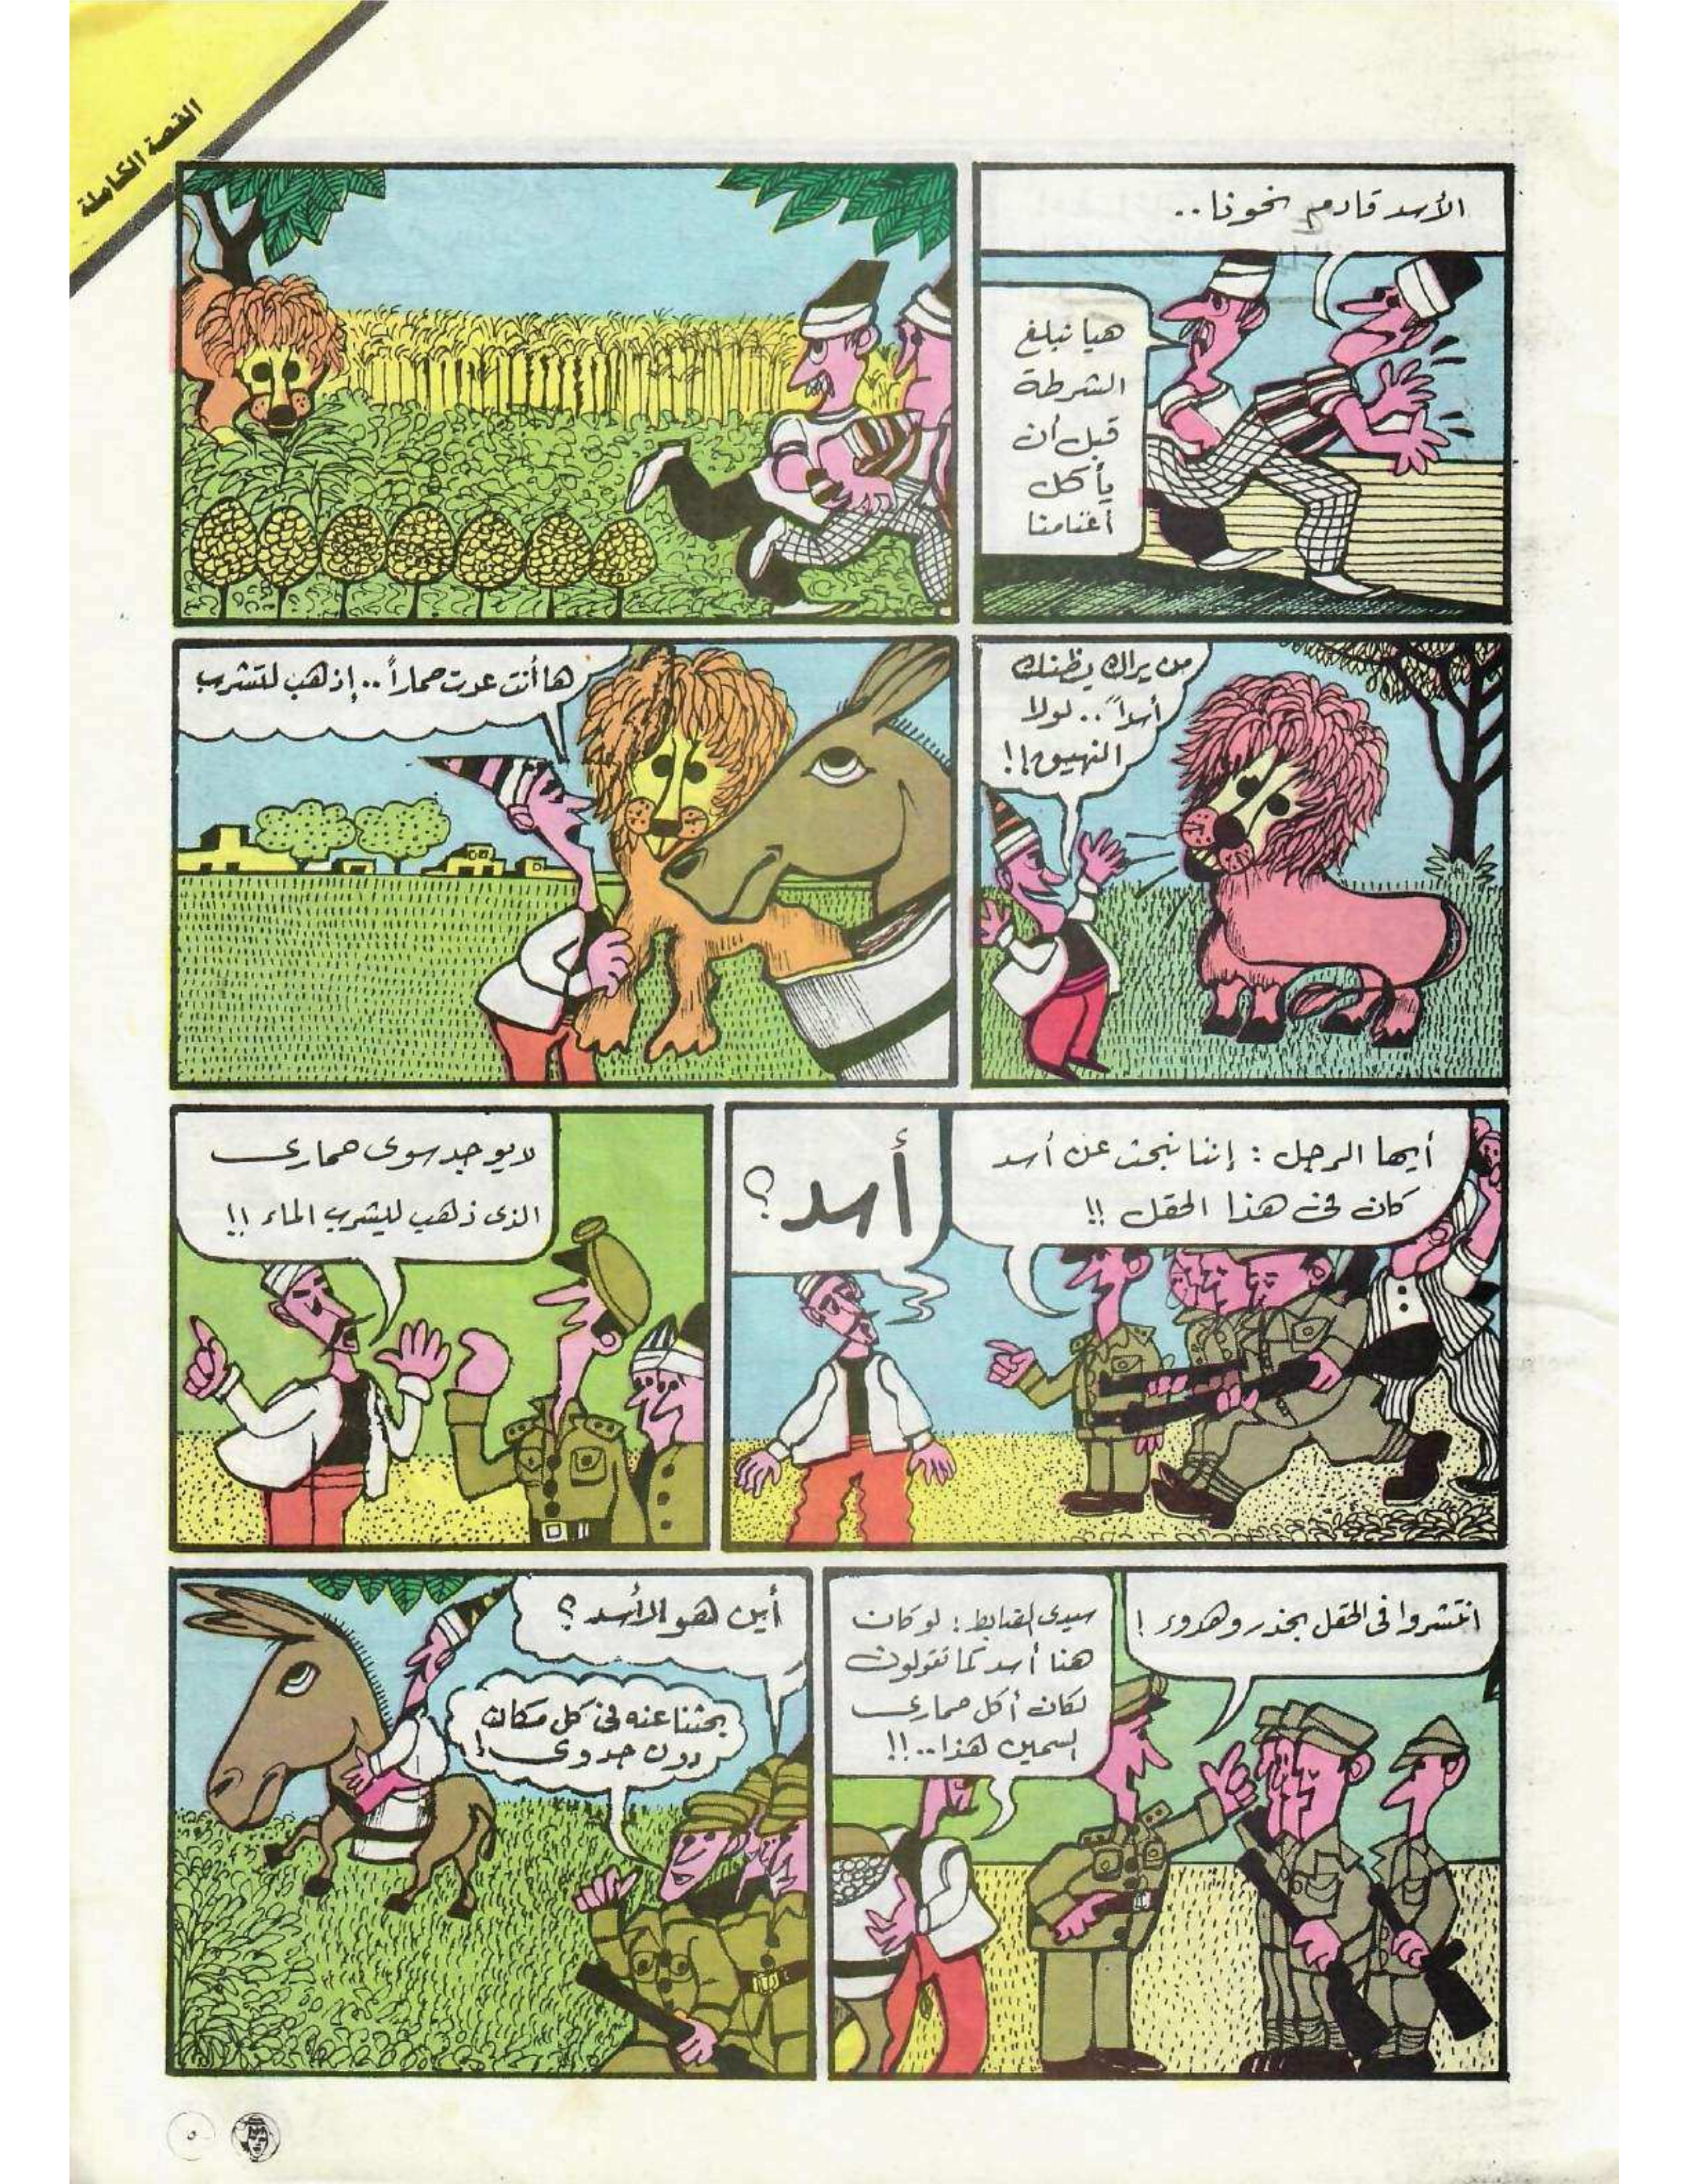 القصة الكاملة
الأسد قادم نحونا..
هيا نبلغ
الشرطة
قبل أن
يأكل
أغنامنا
من يراك يظنك
أسداً.. لولا
النهيق!!
ها أنت عدت حماراً.. إذهب لتشرب
أيها الرجل : إننا نبحث عن أسد
كان في هذا الحقل !!
أسد؟
لا يوجد سوى حمارى
الذى ذهب ليشرب الماء !!
انتشروا فى الحقل بحذر وهدوء !
سيدى الضابط : لو كان
هنا أسد كما تقولون
لكان أكل حمارى
السمين هذا..!!
أين هو الأسد ؟
بحثنا عنه في كل مكان
دون جدوى !
٥